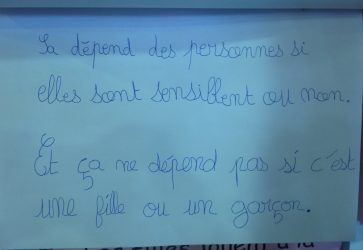 Sa dépend des personnes si
elles sont sensiblent ou non.
Et ça ne dépend pas si c'est
une fille ou un garçon.